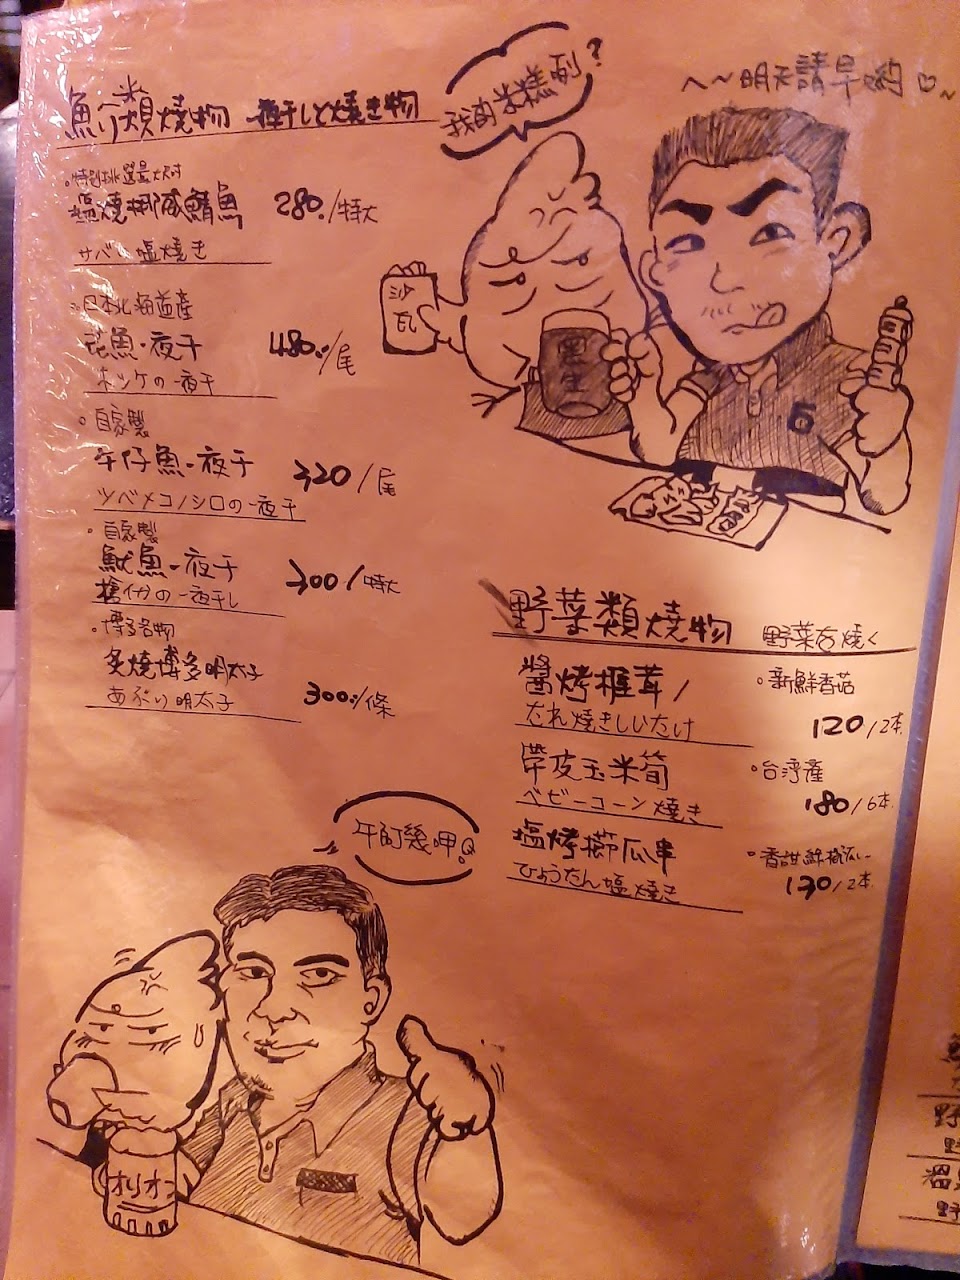 我的米糕咧?
～～明天請早喲♡～
魚介類燒物 一夜干しと燒き物
。特別挑選最大尺寸
鹽燒挪威鯖魚 280./特大
サバ 塩燒き
日本北海道產
花魚一夜干 480./尾
ホッケの一夜干
。自家製
午仔魚一夜干 320/尾
ツバメコノシロの一夜干
。自家製
魷魚一夜干 300/特大
槍イカの一夜干し
。博多名物
炙燒博多明太子 300./條
あぶり明太子
沙瓦
黑生
野菜類燒物 野菜を燒く
醬烤椎茸 。新鮮香菇
たれ燒きしいたけ 120/2本
帶皮玉米筍 。台湾產
ベビーコーン燒き 180/6本
塩烤櫛瓜串
ひょうたん塩燒き 130/2本
オリオン
野
野
溫
野